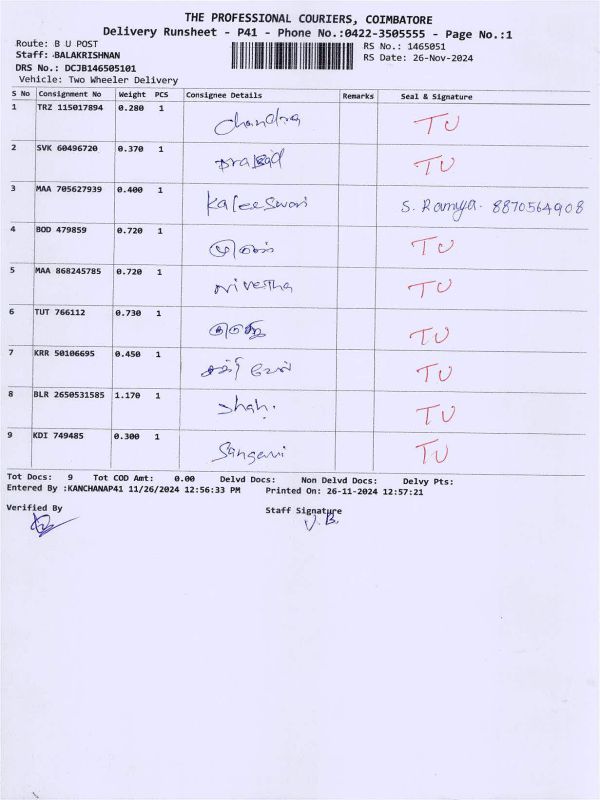 THE PROFESSIONAL COURIERS, COIMBATORE
Delivery Runsheet - P41 - Phone No.:0422-3505555 - Page No.:1
Route: B U POST
RS No.: 1465051
Staff: BALAKRISHNAN
RS Date: 26-Nov-2024
DRS No.: DCJB146505101
Vehicle: Two Wheeler Delivery
S No Consignment No Weight PCS Consignee Details Remarks Seal & Signature
1 TRZ 115017894 0.280 1 Chandra TU
2 SVK 60496720 0.370 1 prasad TU
3 MAA 705627939 0.400 1 Kaleeswari S. Ramya. 8870564908
4 BOD 479859 0.720 1 TU
5 MAA 868245785 0.720 1 Nivetha TU
6 TUT 766112 0.730 1 TU
7 KRR 50106695 0.450 1 சக்தி வேல் TU
8 BLR 2650531585 1.170 1 Shah. TU
9 KDI 749485 0.300 1 Sangavi TU
Tot Docs: 9 Tot COD Amt: 0.00 Delvd Docs: Non Delvd Docs: Delvy Pts:
Entered By :KANCHANAP41 11/26/2024 12:56:33 PM Printed On: 26-11-2024 12:57:21
Verified By Staff Signature